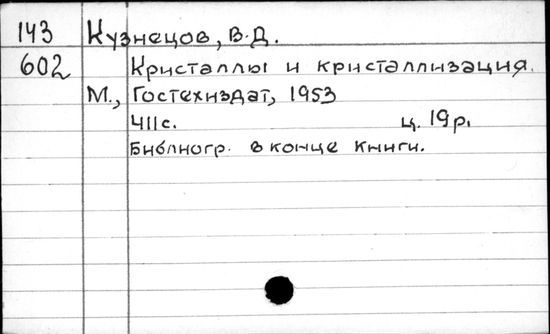 143 Кузнецов, В.Д.
602 Кристаллы и кристаллизация.
М., Гостехиздат, 1953
411с. ц. 19р.
Библиогр. в конце книги.